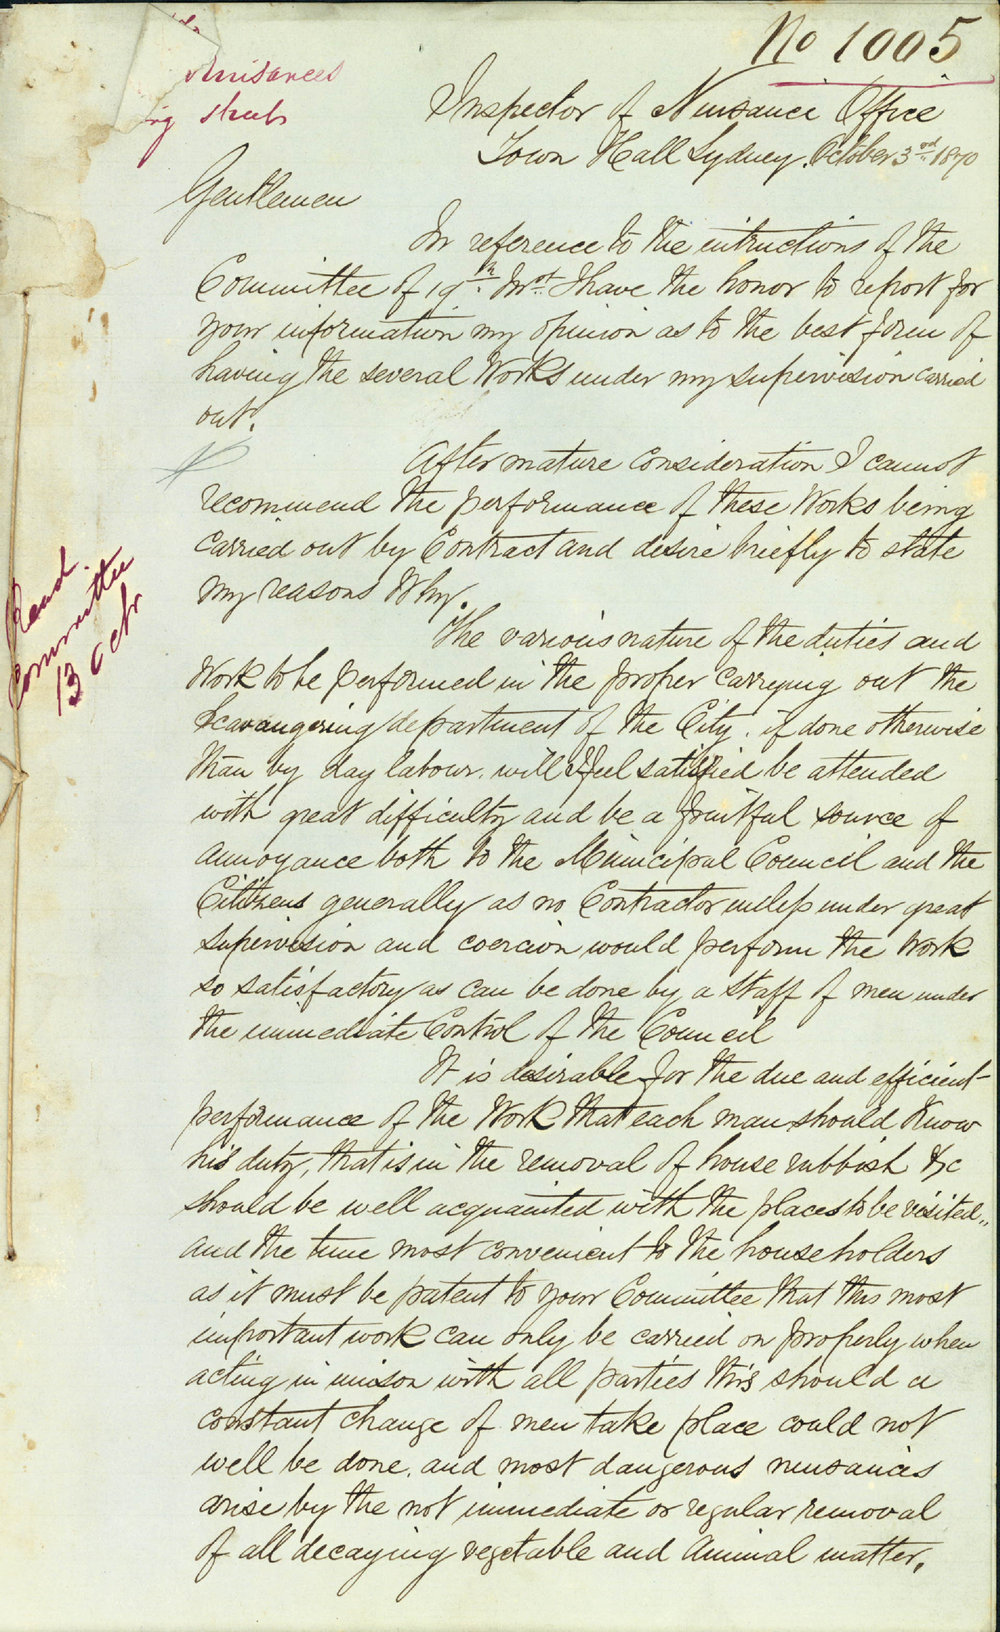 No 1005
nuisances
streets
Inspector of Nuisance Office
Town Hall Sydney. October 3rd 1870
Gentlemen
In reference to the intructions of the
Committee of 19th Inst. I have the honor to report for
your information my opinion as to the best form of
having the several Works under my supervision carried
out.
After mature consideration I cannot
recommend the performance of these Works being
carried out by Contract and desire briefly to state
my reasons Why.
Read
Committee
13 Octr
The various nature of the duties and
Work to be performed in the proper carrying out the
Scavangering department of the City. if done otherwise
than by day labour. will I feel satisfied be attended
with great difficulty and be a fruitful source of
annoyance both to the Municipal Council and the
Citizens generally as no Contractor unless under great
supervision and coercion would perform the Work
so satisfactory as can be done by a staff of men under
the immediate Control of the Council
It is desirable for the due and efficient
performance of the Work that each man should Know
his duty, that is in the removal of house rubbish &c
should be well acquainted with the places to be visited,
and the time most convenient to the householders
as it must be patent to your Committee that this most
important work can only be carried on properly when
acting in unison with all parties this should a
constant change of men take place could not
well be done. and most dangerous nuisances
arise by the not immediate or regular removal
of all decaying vegetable and Animal matter.